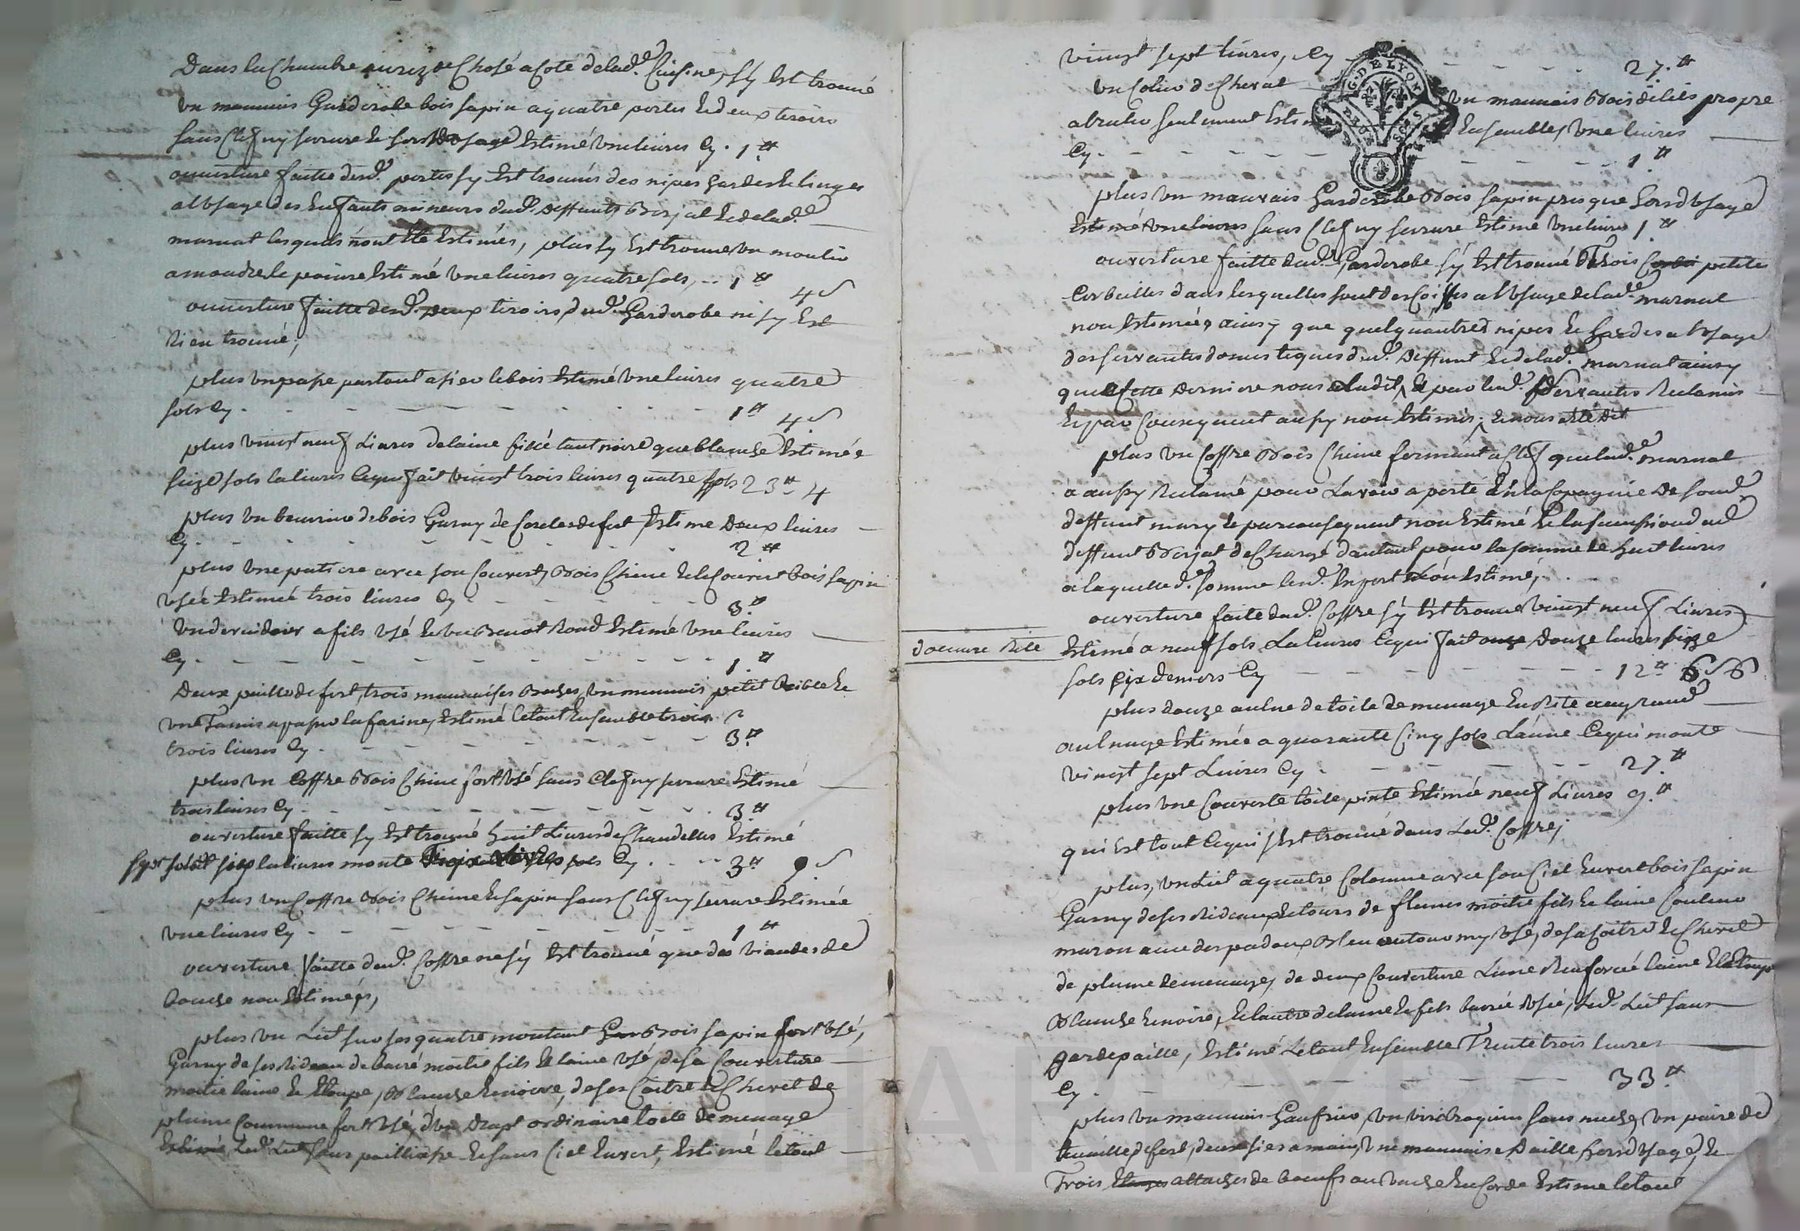 Dans la Chambre au rez de Chosé a Coté de lad.e Cuisine, sy Est trouvé
un mauvais Garderobe bois sapin a quatre portes Et deux tiroirs
sans Clef ny serrure Et hors d'usage Estimé une livres Cy . 1.tt
ouverture faitte desd. portes sy Est trouvés des nipes hardes Et linges
a l'usage des Enfants mineurs dud. deffunt Borjat Et de lad.e
marnat lesquels n'ont Eté Estimés, plus sy Est trouvé un moulin
a moudre le poivre Estimé une livres quatre sols, .. 1 tt 4 s
ouverture faitte desd. deux tiroirs dud. Garderobe ni sy Est
Rien trouvé,
plus un passe partout a sier le bois Estimé une livres quatre
sols Cy . 1 tt 4 s
plus vingt neuf Livres de laine filée tant noire que blanche Estimée
seize sols la livres Ce qui fait vingt trois livres quatre sols 23 tt 4
plus un beurrier de bois Garny de Cercles de fer Estimé Deux livres
Cy . 2 tt
plus une patiere avec son Couvert, Bois Chene Et le Couvert bois sapin
usée Estimée trois livres Cy . 3.tt
un devidoir a fils usé Et un Benot Rond Estimé une livres
Cy . 1.tt
Deux pailles de fert, trois mauvaises Baches, un mauvais petit Crible Et
une Tamis a passer la farine, Estimé le tout Ensemble trois
trois livres Cy . 3.tt
plus un Coffre Bois Chene fort usé sans Clef ny serrure Estimé
trois livres Cy . 3.tt
ouverture faitte sy Est trouvé huit Livres de Chandelles Estimé
la livres monte sols Cy . 3 tt s
plus un Coffre Bois Chene Et sapin sans Clef ny serrure Estimée
une livres Cy . 1 tt
ouverture faitte dud. Coffre ne sy Est trouvé que des viandes de
bouche non Estimées,
plus un Lit sur ses quatre montant Bois sapin fort usé,
Garny de ses Rideau de barré moitié fils Et laine usé, de sa Couverture
moitié laine Et Etoupe, Blanche Et noire, de ses Coitre Et Chevet de
plume Commune fort usé, d'un Drapt ordinaire toile de menage
Estimé Led. Lit sans paillasse Et sans Ciel Ensert, Estimé le tout
vingt sept livres, Cy 27.tt
un Colier de Cheval un mauvais Bois de lit propre
a bruler seulement Estimé Ensemble, une livres
Cy . 1 tt
G. DE LYON
DEUX SOLS
plus un mauvais Garderobe Bois sapin presque hors d'usage
Estimé une livres sans Clef ny serrure Estimé une livres 1.tt
ouverture faitte dud. Garderobe sy Est trouvé Trois petites
Corbeilles dans lesquelles sont des Coiffes a l'usage de lad.e marnat
non Estimées ainsy que quelqu'autres nipes Et hardes a l'usage
des servantes domestiques dud. deffunt Et de lad.e marnat ainsy
que Cette Derniere nous a dit, Et par lesd. servantes Reclamés
Et par Consequent aussy non Estimés, Et nous
plus un Coffre Bois Chene fermant a Clef que lad.e marnat
a aussy Reclamé pour l'avoir aporté En la Compagnie De feu sond.
deffunt mary Et par consequent non Estimé Et la succession dud.
deffunt Borjat déChargé d'autant pour la somme de huit livres
a laquelle d.e somme lesd. Expert l'on Estimé,
ouverture faite dud. Coffre sy Est trouvé vingt neuf Livres
d'oeuvre Rite
Estimé a neuf sols La Livres Ce qui fait Douze livres seize
sols six deniers Cy 12 tt 6 s 6
plus douze aulne de toile de menage En Rite au grand
aulnage Estimée a quarante Cinq sols L'aune Ce qui monte
vingt sept Livres Cy . 27.tt
plus une Couverte toile pinte Estimée neuf Livres 9.tt
qui Est tout Ce qui s'Est trouvé dans Led. Coffre,
plus, un Lit a quatre Colomne avec son Ciel Envert bois sapin
Garny de ses Rideaux Et tours de fleuret moitié fils Et laine Couleur
maron avec des padoux Bleu autour my usé, de sa Coitre Et Chevet
de plume de menage, de deux Couverture L'une Renforcée laine Et Etoupe
Blanche Et noire, Et l'autre de laine Et fils barrée usée, Led. Lit sans
gardepaille, Estimé Le tout Ensemble Trente trois livres
Cy . 33.tt
plus un mauvais Gaufrier, un virebroquin sans meche, un paire de
tenaille de fert, deux sies a main, une mauvaise Paille hors d'usage, Et
Trois attaches de boeufs ou vache En Corde Estimé le tout